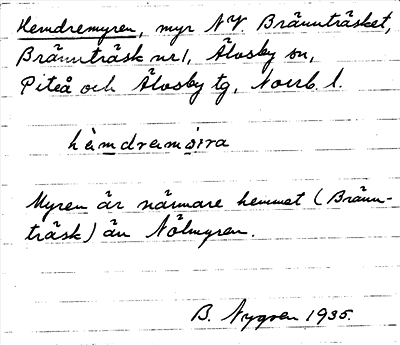 Hemdremyren, myr NV. Brännträsket,
Brännträsk nr 1, Älvsby sn,
Piteå och Älvsby tg, Norrb. l.
hä̀mdremøira
Myren är närmare hemmet (Bränn-
träsk) än Nölmyren.
B. Nygren 1935.